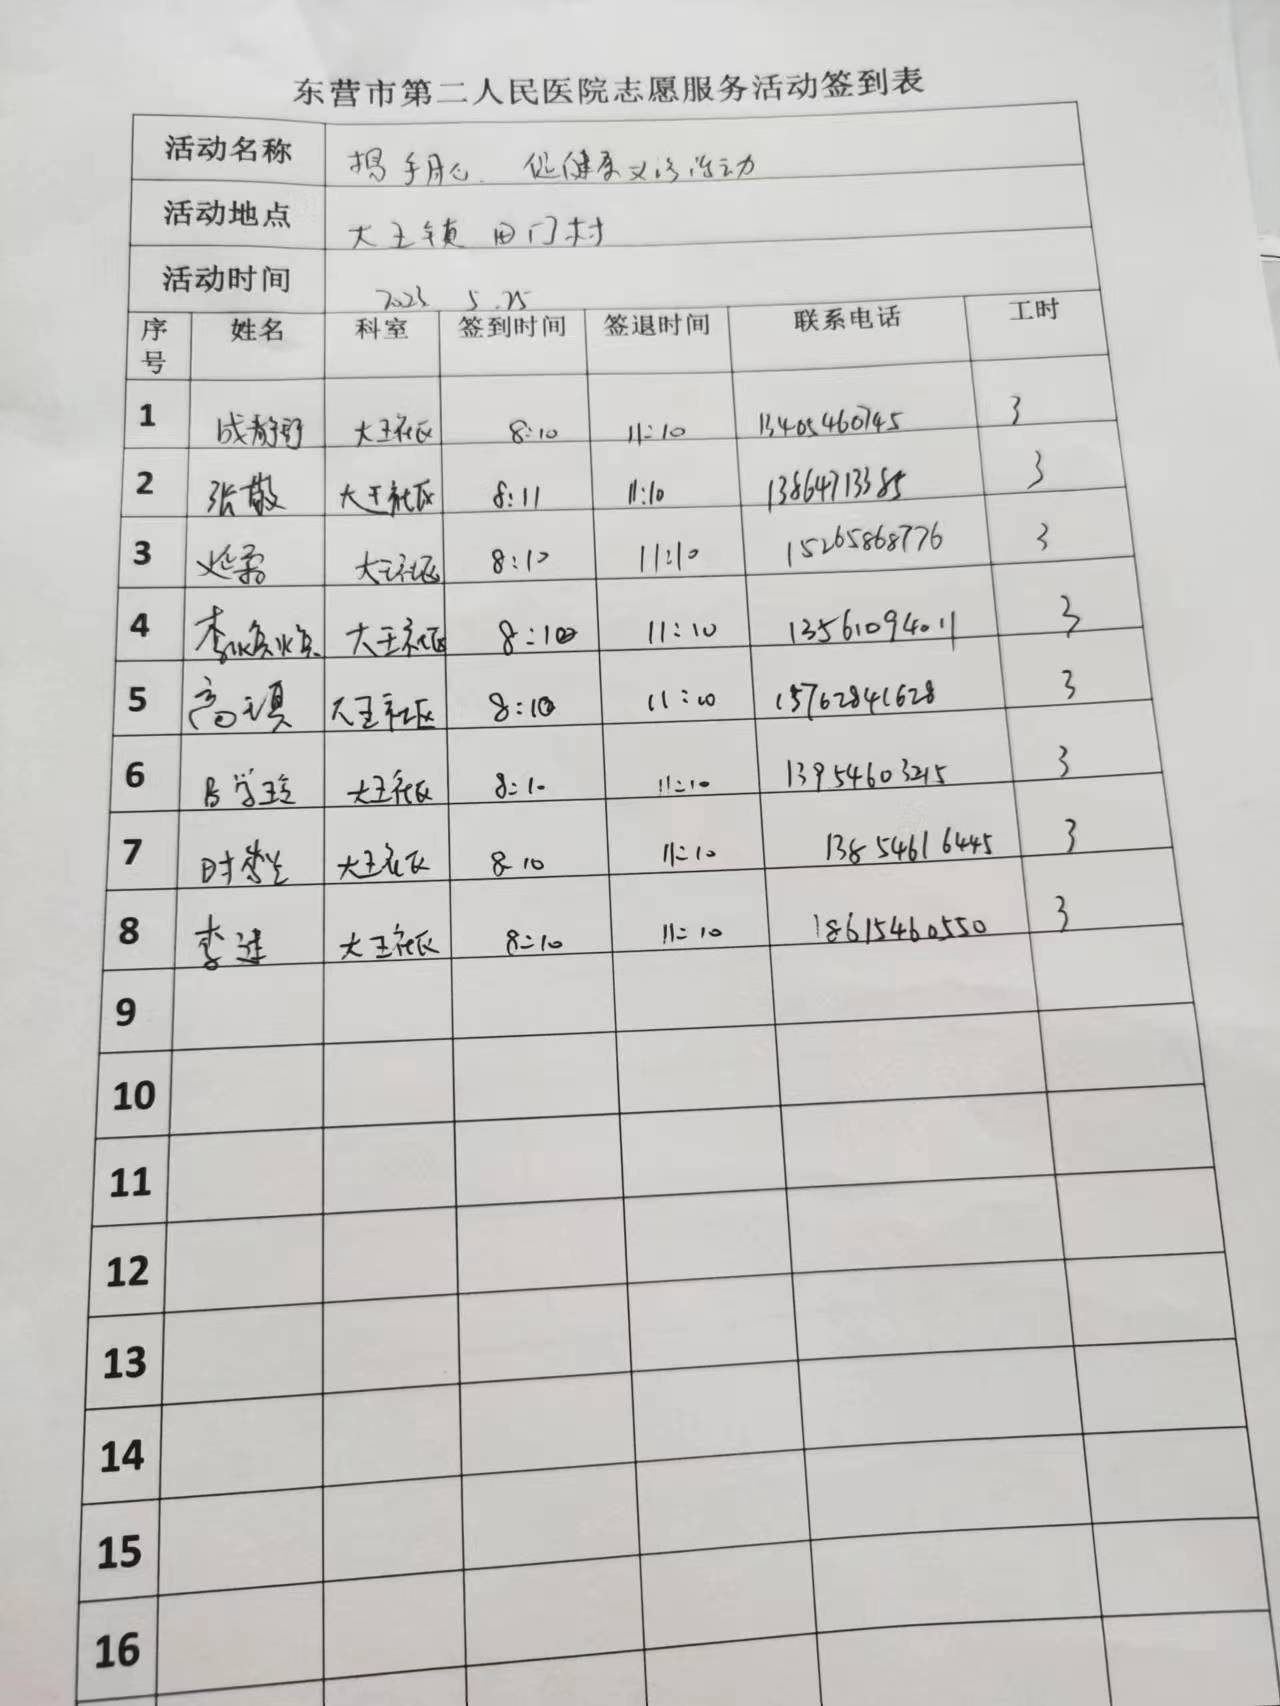 东营市第二人民医院志愿服务活动签到表
活动名称 促健康义诊活动
活动地点 大王镇 田门村
活动时间 2023 5.25
序号 姓名 科室 签到时间 签退时间 联系电话 工时
1 成静 大王社区 8:10 11:10 13405460745 3
2 张敬 大王社区 8:11 11:10 13864713385 3
3 延 大王社区 8:10 11:10 15265868776 3
4 李焕焕 大王社区 8:10 11:10 13561094011 3
5 高 大王社区 8:10 11:10 15762841628 3
6 学 大王社区 8:10 11:10 13954603215 3
7 时 大王社区 8:10 11:10 13854616445 3
8 李 大王社区 8:10 11:10 18615460550 3
9
10
11
12
13
14
15
16